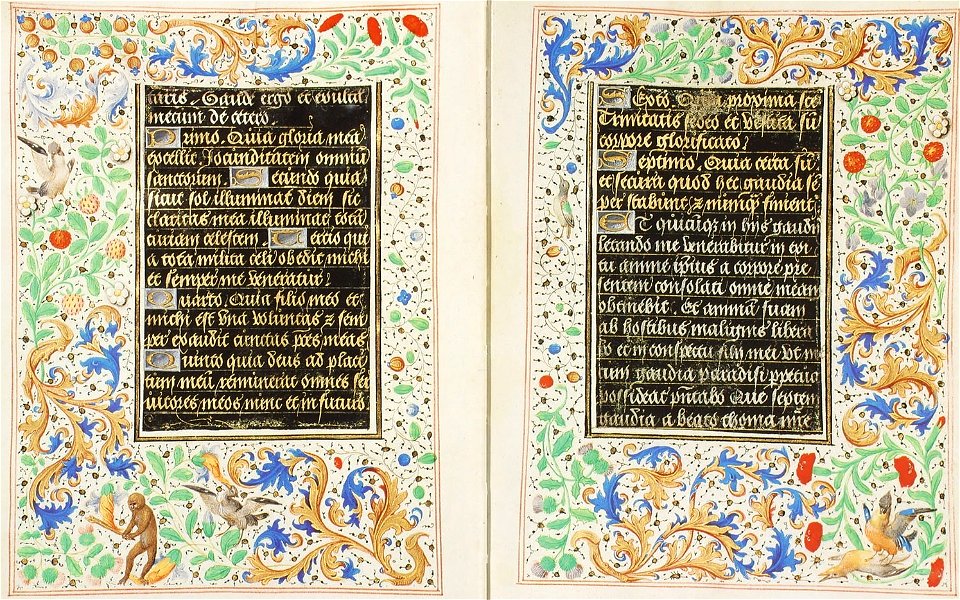 taris. Gaude ergo et exulta
mecum de cetero.
Primo. Quia gloria mea
excellit Jocunditatem omniu
sanctorum. Secundo quia
sicut sol illuminat diem sic
claritas mea illuminat totā
curiam celestem. Tercio quia
a tota milicia celi obedit michi
et semper me veneratur.
Quarto. Quia filio meo et
michi est una voluntas z sem
per exaudit cunctas p̄ces meas
Quinto quia deus ad placi
tum meū remunerat omnes ser
uitores meos nunc et in futuro
Sexto. Quia proxima sc̄e
Trinitatis sedeo et vestita sū
corpore glorificato.
Septimo. Quia certa sū
et secura quod hec gaudia sē
per stabunt, z nunq̄ finient.
Et quicūqz in hiis gaudi
letando me venerabitur in exi
tu anime ipsius a corpore pre
sentem consolati onme meam
obtinebit. Et animā suam
ab hostibus malignis libera
bo et in conspectu filii mei ut me
cum gaudia paradisi ppetuo
possideat p̄ntabo Que septem
gaudia a beato thoma